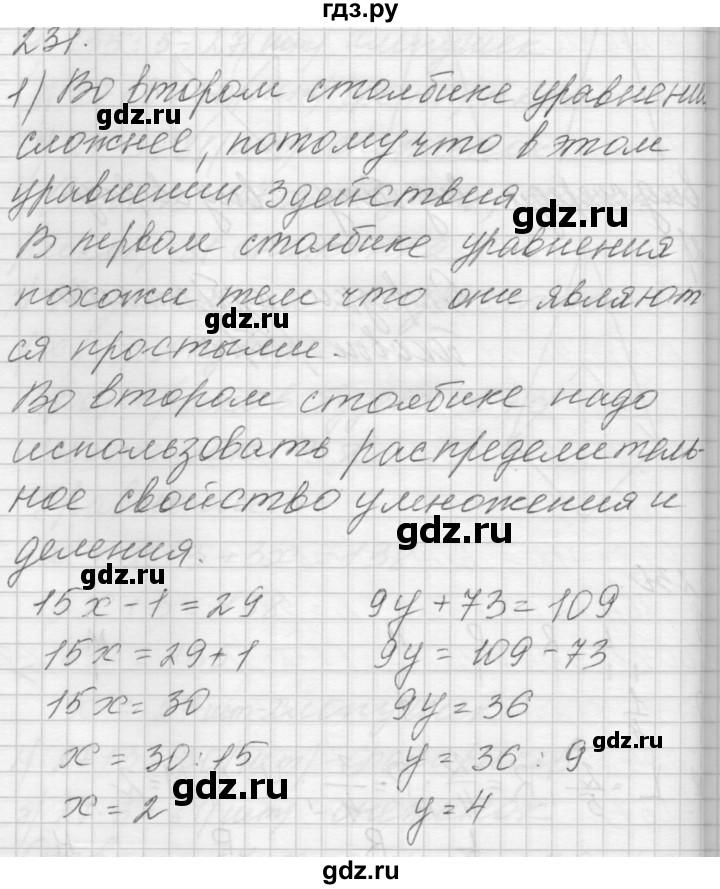 гдз.ру
231.
1) Во втором столбике уравнении
gdz.ru
сложнее, потому что в этом
уравнении 3 действия
gdz.ru
В первом столбике уравнения
похожи тем что они являют
gdz.ru
ся простыми.
Во втором столбике надо
использовать распределитель-
ное свойство умножения и
gdz.ru
деления.
gdz.ru
15x - 1 = 29 9y + 73 = 109
15x = 29 + 1 9y = 109 - 73
15x = 30 9y = 36
gdz.ru
x = 30 : 15 y = 36 : 9
gdz.ru
x = 2 y = 4
gdz.ru